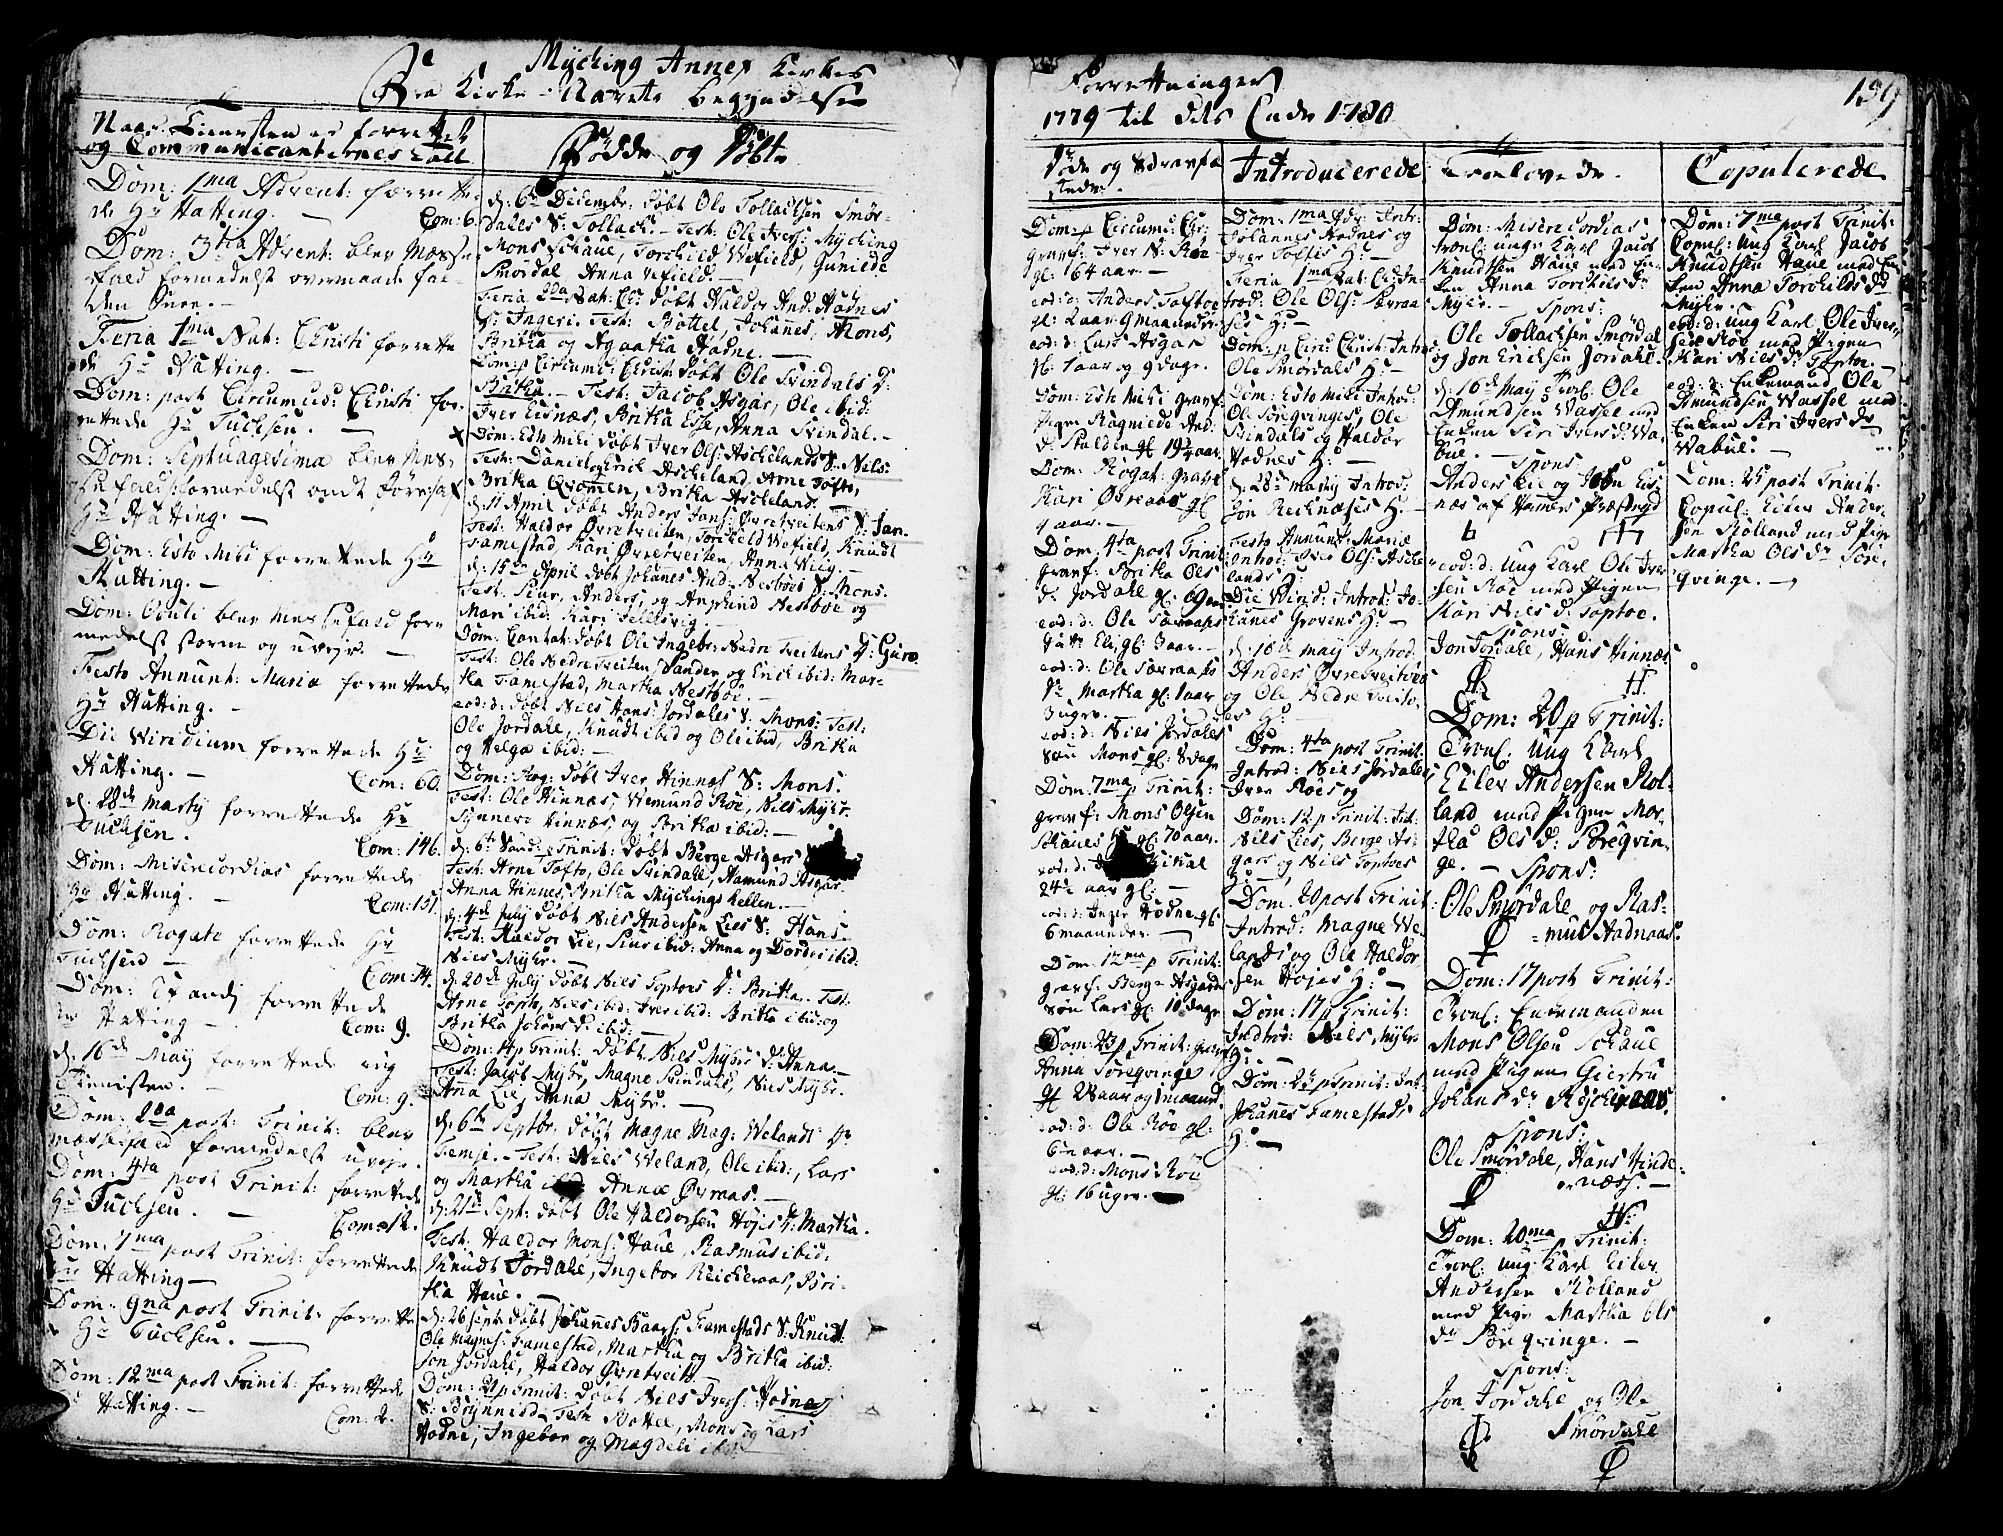 Mÿching Annex Kirkes
Fra Kirke-Aarets begÿndelse
Naar Tienesten er forrettet
og Communicanternes tall
Dom: 1ma Advent: forrette-
de Hr Hatting. —
Com: 6.
Dom: 3tia Advent: blev Messe
fald formedelst overmaade
Feria 1ma Nat: Christi forrette
de Hr Hatting. —
Dom: post Circumcis: Christi for-
rettede Hr Tuchsen. —
Dom: Septuagesima blev Mes-
se fald formedelst ondt føre
Hr Hatting. —
Dom: Esto Mihi forrettede Hr
Hatting. —
Dom: Oculi blev Messefald for-
medelst storm og uvejr. —
Festo Annunt: Mariæ forrettede
Hr Hatting. —
Die Viridium forrettede Hr
Hatting. —
Com: 60.
d: 28de Martij forrettede Hr
Tuchsen.
Com: 146.
Dom: Misericordias forrettede
Hr Hatting. —
Com: 151.
Dom: Rogate forrettede Hr
Tuchsen —
Com: 74.
Dom: Exaudj forrettede
Hr Hatting —
Com: 9.
d: 16de Maÿ forrettede
Tienisten. —
Com: 9.
Dom: 2da post: Trinit: blev
messefald formedelst uvejr. —
Dom: 4ta post Trinit: forrettede
Hr Tuchsen. —
Dom: 7ma post Trinit: forrettede
Hr Hatting —
Dom: 9na post Trinit: forrette
de Hr Tuchsen. —
Dom: 12ma post Trinit: forrettede
Hr Hatting. —
Com: 2.
Fødde og Døbte
d: 6te Decembr: døbt Ole Tollachsen Smør-
dales S: Tollach. — Test: Ole Ivers: Mÿching
Mons Schaue, Torchild Wefield, Gunilde
Smørdal Anna Vefield. —
Feria 2da Nat: Chr: døbt Haldor And: Hadnes
D: Ingeri. Test: Bottel, Johanes, Mons,
Britha og Agaatha Hadne. —
Dom: p Circumc: Christi døbt Ole Svindals D:
Britha. — Test: Jacob Asgar, Ole ibid:
Iver Eisnæs, Britha Esse, Anna Svindal. —
Dom: Esto Mihi døbt Iver Ols: Aschelands S: Nils:
Test: Daniel, Erik Ascheland, Arne Tofte,
Britha Qvomen, Britha Ascheland. —
d: 11 April døbt Anders Jans: Øvretveitens S: Jan.
Test: Haldor Øvretveiten, Torchild Wefield, Knudt
Famestad, Kari Øvretveiten, Anna Wiig. —
d: 15de April døbt Johanes And: Nestbøes S: Mons.
Test: Siur, Anders, og Amund Nestbøe og
Mari ibid: Kari Tellesvig. —
Dom: Cantat: døbt Ole Ingebr: Nedre Tveitens D: Guro
Test: Ole Nedre Tveiten, Sander og Erich ibid: Mar-
tha Famestad, Martha Nestbøe. —
eod: d: døbt Niels Hans: Jordales S: Mons: Test:
Ole Jordale, Knudt ibid og Ole ibid, Britha
og Helga ibid: —
Dom: Rog: døbt Iver Hinnæs S: Mons.
Test: Ole Hinnæs, Wemund Røe, Niels Mÿhr.
Sÿnneve Hinnæs og Britha ibid: —
d: 6te Sønd: p Trinit: døbt Berge Asgars
Test: Arne Tofte, Ole Svindale, Aamund Asgar.
Anna Hinnes, Britha Mÿchings Kellen. —
d: 4de Julÿ døbt Niels Andersen Lies S: Hans.
Test: Haldor Lie, Siur ibid: Anna og Dordei ibid:
Niels Mÿhr. —
d: 20de Julÿ døbt Niels Toptoes D: Britha. Test:
Arne Topte, Niels ibid: Iver ibid: Britha ibid: og
Britha Johans D: ibid: —
Dom: 14 p Trinit: døbt Niels Mÿhrs D: Anna —
Test: Jacob Mÿhr, Magne Svindale, Niels Mÿhr.
Ana Lie, Anna Mÿhr. —
d: 6te Septbr. døbt Magne Mag: Welands D:
Femje. — Test: Niels Weland, Ole ibid:, Lars
og Martha ibid: Annæ Øvraas. —
d: 21de Sept: døbt Ole Haldorsen Højes D: Martha.
Test: Haldor Mons: Haue, Rasmus ibid:
Knudt Jordale, Ingebor Reicheraas, Bri-
tha Haue. —
d: 26 Sept: døbt Johanes Baars: Famestads S: Knudt
Ole Magnes: Famestad, Martha og Britha ibid:
Jon Jordale, Haldor Øvretveit. —
Dom: 21 p Trinit: døbt Niels Ivers: Hadnes
S: Brÿnnild. Test: Bottel, Mons og Lars
Hadne, Ingebor og Magdeli ibid:
Forretninger
1779 til dets Ende 1780
139
Døde og Begravede
Dom: p Circumc: Chr:
gravf: Iver N: Røe
gl: 64 aar. —
eod: d: Anders Toftoe
gl: 2 aar 9 maaneder.
eod: d: Lars Asgar
gl: 1 aar og 9 dage.
Dom: Esto Mihi gravf:
Pigen Ragnilde And:
D: Stalden gl 19½ aar.
Dom: Rogat: gravf
Kari Øvreaas gl
9 aar. —
Dom: 4ta post Trinit:
gravf: Britha Ols
D: Jordale gl. 69 aar
eod: d: Ole Særvaaes
Datt: Eli, gl: 3 aar. —
eod: d: Ole Særvaaes
Dr Martha gl: 1 aar
3 uger.
eod: d: Niels Jordales
Søn Mons gl: 8 dage
Dom: 7ma p Trinit:
gravf: Mons Olsen
Schaues H: gl: 70 aar.
eod: d:
24de aar gl: —
eod: d: Inger Hodne gl
6 maaneder. —
Dom: 12ma p Trinit:
gravf: Berge Asgars
Søn Lars gl. 10 dage
Dom: 23 p Trinit: gravf
Anna Søreqvinge
gl 28 aar og 1 maaned.
eod: d: Ole Røe gl:
6 aar. —
eod: d: Mons Røe
gl: 16 uger. —
Introducerede
Dom: 1ma Adv: Intr:
Johannes Hadnes og
Iver Toftes H: —
Feria 1ma Nat: Chr: In-
trod: Ole Ols: Særvaa-
ses H: —
Dom: p Circ: Christ: Intro
Ole Smørdals H: —
Dom: Esto Mihi Introd:
Ole Søreqvinges, Ole
Svindals og Haldor
Hodnes H: —
d: 28de Martÿ Introd:
Jon Rechnæses H: —
Festo Annunt: Mariæ
Introd: Iver Ols: Asche
lands H:
Die Virid: Introd: Jo-
hanes Grovens H: —
d: 16de Maÿ Introd:
Anders Øvretveitens
og Ole Nedre Tveito-
es H: —
Dom: 4ta post Trinit.
Introd: Niels Jordales
Iver Røes og
Dom: 12 p Trinit: Int:
Niels Lies, Berge As-
gars og Niels Toptoes
H: —
Dom: 20 post Trinit
Introd: Magne We-
lands og Ole Haldor
sen Højes H: —
Dom: 17 p Trinit:
Indtro: Niels Mÿhrs
H: —
Dom: 23 p Trinit: Int
Johanes Famestads
H: —
Troelovede.
Dom: Misericordias
trovl: unge Karl Jacob
Knudtsen Haue med Pi-
gen Anna Torchilds Dr
Mÿhr. — Spons:
Ole Tollachsen Smørdal
og Jon Erichsen Jordale. —
d: 16de Maÿ Trovl: Ole
Amundsen Wassel med
Enken Siri Ivers D: Wa-
bue. — Spons:
Anders Lie og Eis-
næs af Hamers Præstegd
eod: d: ung Karl Ole Iver
sen Røe med Pigen
Kari Niels D: Toptoe.
Spons:
Jon Jordale, Hans Hinnæs
Dom: 20 p Trinit:
Trovl: ung Karl
Eiler Andersen Rol-
land med Pigen Mar-
tha Ols D: Søreqvin-
ge. — Spons:
Ole Smørdale og Ras-
mus Hadnaas.
Dom: 17 post Trinit:
Trovl: Enkemanden
Mons Olsen Schaue
med Pigen Giertru
Johans Dr Rÿcheraas.
Spons:
Ole Smørdale, Hans Hinde-
næss. —
H:
Dom: 20ma p Trinit:
Trovl: ung Karl Eiler
Andersen Rolland
med Pige Martha Ols
Dr Søreqvinge. —
Spons:
Jon Jordale og Ole
Smørdale
Copulerede
Dom: 7ma post Trinit:
Copul: Ung Karl Jacob
Knudtsen Haue med Pi-
gen Anna Torchilds Dr
Mÿhr. —
eod: d: ung Karl Ole Iver-
sen Røe med Pigen
Kari Niels D: Toptoe. —
eod: d: Enkemand Ole
Amundsen Wassel med
Enken Siri Ivers Dr
Wabue. —
Dom: 23 post Trinit:
Copul: Eiler Ander-
sen Rolland med Pige
Martha Ols Dr Søre-
qvinge. —